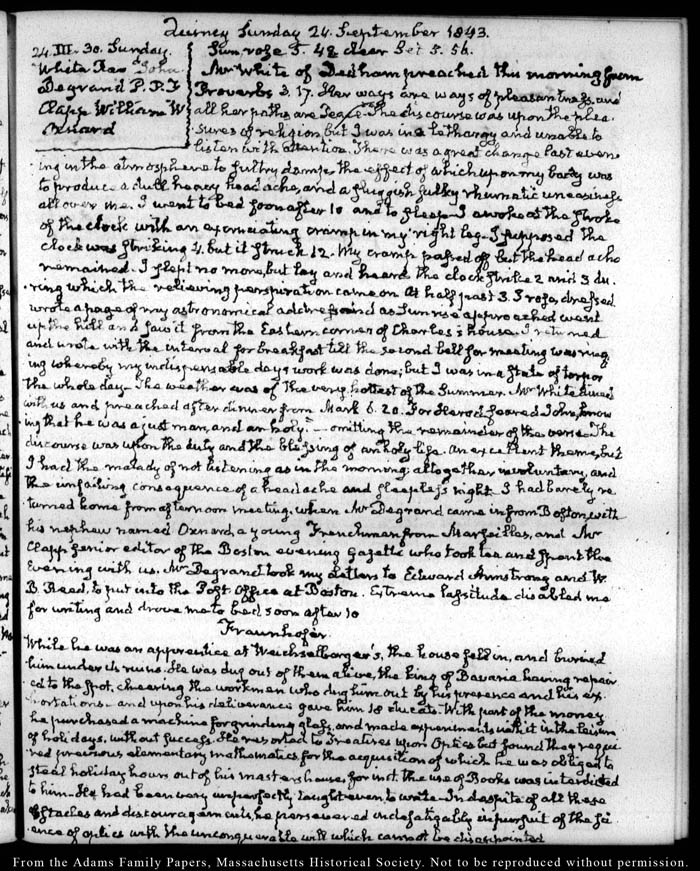 Quincy Sunday 24. September 1843.
24. III. 30. Sunday.
White Rev.d John
Degrand P. P. F
Clapp William W
Oxnard
Sun rose 5. 48 clear Set 5. 56.
Mr White of Dedham preached this morning from
Proverbs 3. 17. Her ways are ways of pleasantness, and
all her paths are Peace. The discourse was upon the plea-
sures of religion but I was in a lethargy and unable to
listen with attention. There was a great change last even-
ing in the atmosphere to sultry damps, the effect of which upon my body was
to produce a dull heavy head ache, and a sluggish sulky rheumatic uneasiness
all over me. I went to bed soon after 10 and to sleep. I awoke at the stroke
of the clock with an excruciating cramp in my right leg. I supposed the
clock was striking 4. but it struck 12. My cramp passed off but the head ache
remained. I slept no more, but lay and heard the clock strike 2 and 3 du-
-ring which the relieving perspiration came on. At half past 3. I rose, dressed
wrote a page of my astronomical address and as Sun rise approached went
up the hill and saw it from the Eastern corner of Charles's house. I returned
and wrote with the interval for breakfast till the second bell for meeting was ring-
ing whereby my indispensable day's work was done; but I was in a state of torpor
the whole day. The weather was of the very hottest of the Summer. Mr White dined
with us and preached after dinner from Mark 6. 20. For Herod feared John, know-
ing that he was a just man, and an holy. — omitting the remainder of the verse. The
discourse was upon the duty and the blessing of an holy life. An excellent theme, but
I had the malady of not listening as in the morning; altogether involuntary, and
the unfailing consequence of a headache and sleepless night. I had barely re-
turned home from afternoon meeting, when Mr Degrand came in from Boston, with
his nephew named Oxnard, a young Frenchman from Marseilles, and Mr
Clapp Senior editor of the Boston evening Gazette who took tea and spent the
Evening with us. Mr Degrand took my Letters to Edward Armstrong and W.
B. Reed, to put into the Post Office at Boston. Extreme lassitude disabled me
for writing and drove me to bed soon after 10
Fraunhofer
While he was an apprentice at Weichselberger's, the house fell in, and buried
him under its ruins. He was dug out of them alive, the king of Bavaria having repair-
ed to the spot, cheering the workmen who dug him out by his presence and his ex-
hortations. and upon his deliverance gave him 18 ducats. With part of the money
he purchased a machine for grinding glass, and made experiments with it in the leisure
of holidays, without success. He resorted to Treatises upon Optics but found they requi-
red previous elementary mathematics for the acquisition of which he was obliged to
steal holiday hours out of his master's house, for in it the use of Books was interdicted
to him. He had been very imperfectly taught even to write. In despite of all these
obstacles and discouragements, he persevered indefatigably in pursuit of the sci-
ence of optics with the unconquerable will which cannot be disappointed
From the Adams Family Papers, Massachusetts Historical Society. Not to be reproduced without permission.